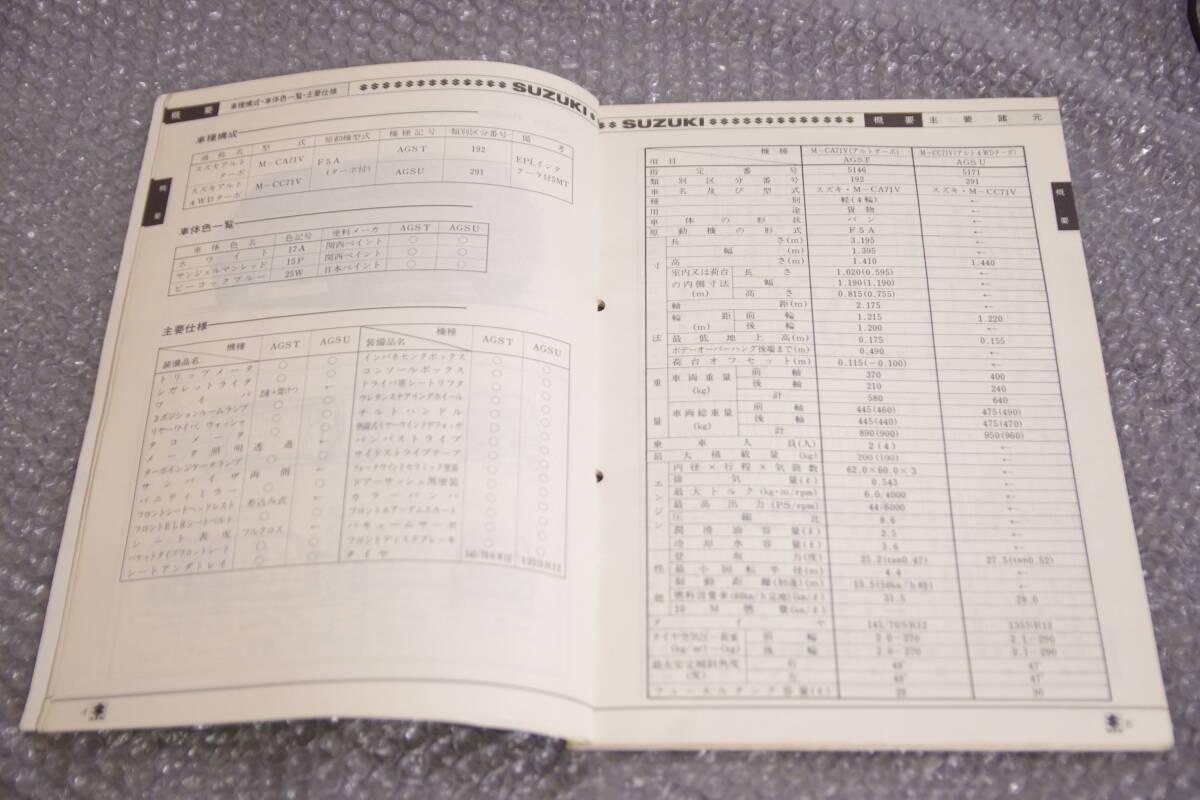 概要
車種構成・車体色一覧・主要仕様
SUZUKI
概要
車種構成
通称名 型式 原動機型式 機種記号 類別区分番号 備考
スズキアルトターボ M-CA71V F5A (ターボ付) AGST 192 EPI,インタクーラ付5MT
スズキアルト4WDターボ M-CC71V AGSU 291
車体色一覧
車体色名 色記号 塗料メーカ AGST AGSU
ホワイト 17A 関西ペイント ○ ○
サンジェルマンレッド 15P 関西ペイント ○ ○
ピーコックブルー 25W 日本ペイント ○ ○
主要仕様
装備品名 機種 AGST AGSU
トリップメータ ○ ○
シガレットライタ ○ ○
ワイパ ←
3ポジションルームランプ ○ ○
リヤーワイパ、ウォッシャ ○ ○
タコメータ ○ ○
メータ照明 透過 ←
ターボインジケータランプ ○ ○
サンバイザ 両側 ←
バニティミラー ○ ○
フロントシートヘッドレスト 差込み式 ←
フロントELRシートベルト ○ ○
シート表皮 フルクロス ←
バケットタイプフロントシート ○ ○
シートアンダトレイ ○ ○
装備品名 機種 AGST AGSU
インパネセンタボックス ○ ○
コンソールボックス ○ ○
ドライバ席シートリフタ ○ ○
ウレタンステアリングホイール ○ ○
チルトハンドル ○ ○
熱線式リヤーウインドデフォッガ ○ ○
バンパストライプ ○ ○
サイドストライプテープ ○ ○
ドアーサッシュ黒塗装 ○ ○
カラーバンパ ○ ○
フロントエアーダムスカート ○ ○
バキュームサーボ ○ ○
フロントディスクブレーキ ○ ○
タイヤ 145/70SR12 135SR12
4
SUZUKI
概要 主要諸元
概要
項目 機種 M-CA71V(アルトターボ) M-CC71V(アルト4WDターボ)
AGST AGSU
指定番号 5146 5171
類別区分番号 192 291
車名及び型式 スズキ・M-CA71V スズキ・M-CC71V
種別 軽(4輪) ←
用途 貨物 ←
車体の形状 バン ←
原動機の形式 F5A ←
寸法 長さ(m) 3.195 ←
幅(m) 1.395 ←
高さ(m) 1.410 1.440
室内又は荷台の内側寸法(m) 長さ 1.020(0.595) ←
幅 1.190(1.190) ←
高さ 0.815(0.755) ←
軸距(m) 2.175 ←
輪距(m) 前輪 1.215 1.220
後輪 1.200 ←
最低地上高(m) 0.175 0.155
ボデーオーバーハング後端まで(m) 0.490 ←
荷台オフセット(m) 0.115(-0.100) ←
重量 車両重量(kg) 前軸 370 400
後軸 210 240
計 580 640
車両総重量(kg) 前軸 445(460) 475(490)
後軸 445(440) 475(470)
計 890(900) 950(960)
乗車人員(人) 2(4) ←
最大積載量(kg) 200(100) ←
エンジン 内径×行程×気筒数 62.0×60.0×3 ←
排気量(ℓ) 0.543 ←
最大トルク(kg·m/rpm) 6.0/4000 ←
最高出力(PS/rpm) 44/6000 ←
圧縮比 8.6 ←
潤滑油容量(ℓ) 2.5 ←
冷却水容量(ℓ) 3.6 ←
性能 登坂力(度) 25.2(tan0.47) 27.5(tan0.52)
最小回転半径(m) 4.4 ←
制動距離(初速)(m) 13.5(50km/h時) ←
燃料消費率(60km/h定地)(km/ℓ) 31.5 28.0
10M燃費(km/ℓ)
タイヤ 145/70SR12 135SR12
タイヤ空気圧-荷重(kg/㎠)-(kg) 前輪 2.0-270 2.1-290
後輪 2.0-270 2.1-290
最大安定傾斜角度(度) 右 48° 47°
左 48° 47°
フューエルタンク容量(ℓ) 28 30